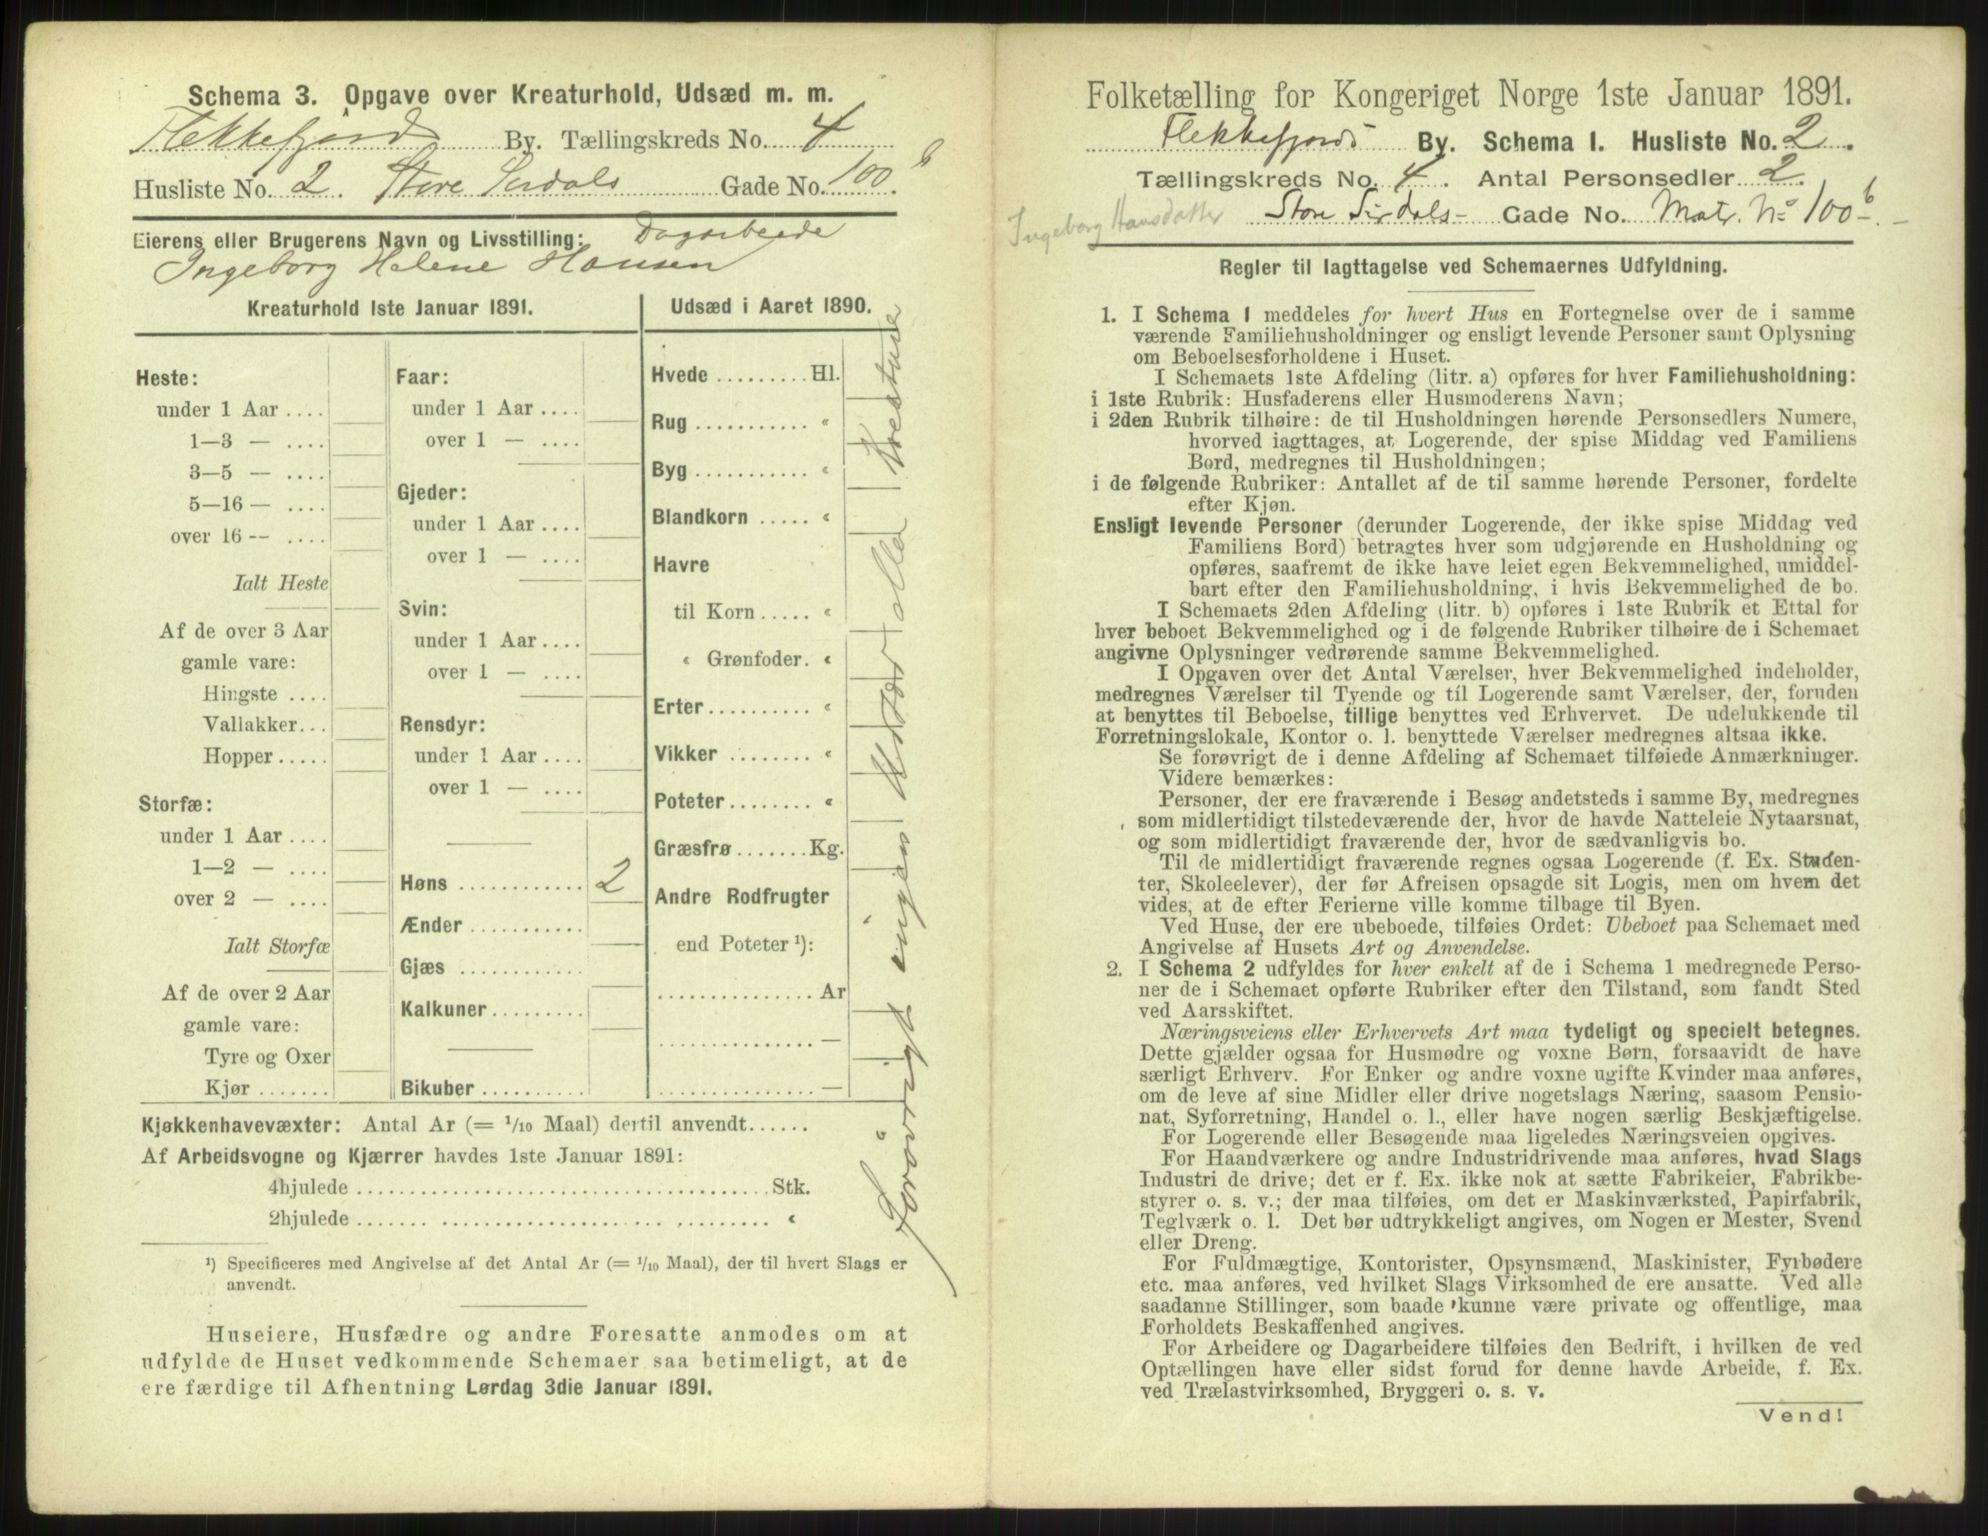 Schema 3. Opgave over Kreaturhold, Udsæd m. m.
Flekkefjord By. Tællingskreds No. 4
Husliste No. 2. Store Serdals Gade No. 100 b.
Eierens eller Brugerens Navn og Livsstilling: Dagarbeide
Ingeborg Helene Hansen
Kreaturhold 1ste Januar 1891.
Heste:
under 1 Aar ....
1—3 — ....
3—5 — ....
5—16 — ....
over 16 — ....
Ialt Heste
Af de over 3 Aar
gamle vare:
Hingste ....
Vallakker...
Hopper.....
Storfæ:
under 1 Aar ....
1—2 — ....
over 2 — ....
Ialt Storfæ
Af de over 2 Aar
gamle vare:
Tyre og Oxer
Kjør .......
Faar:
under 1 Aar ....
over 1 — ....
Gjeder:
under 1 Aar ....
over 1 — ....
Svin:
under 1 Aar ....
over 1 — ....
Rensdyr:
under 1 Aar ....
over 1 — ....
Høns ............ 2
Ænder ...........
Gjæs ............
Kalkuner.........
Bikuber ..........
Udsæd i Aaret 1890.
Hvede .........Hl.
Rug ........... "
Byg ........... "
Blandkorn ..... "
Havre
til Korn..... "
" Grønfoder. "
Erter.......... "
Vikker ........ "
Poteter........ "
Græsfrø.......Kg.
Andre Rodfrugter
end Poteter ¹):
...............Ar
............... —
............... —
Forøvrigt ingen Udsæd eller Kreature
Kjøkkenhavevæxter: Antal Ar (= 1/10 Maal) dertil anvendt......
Af Arbeidsvogne og Kjærrer havdes 1ste Januar 1891:
4hjulede ........................................Stk.
2hjulede ........................................ "
¹) Specificeres med Angivelse af det Antal Ar (= 1/10 Maal), der til hvert Slags er
anvendt.
Huseiere, Husfædre og andre Foresatte anmodes om at
udfylde de Huset vedkommende Schemaer saa betimeligt, at de
ere færdige til Afhentning Lørdag 3die Januar 1891.
Folketælling for Kongeriget Norge 1ste Januar 1891.
Flekkefjords By. Schema I. Husliste No. 2.
Tællingskreds No. 4. Antal Personsedler 2.
Ingeborg Hansdatter Store Sirdals- Gade No. Matr. No 100 b.-
Regler til Iagttagelse ved Schemaernes Udfyldning.
1. I Schema 1 meddeles for hvert Hus en Fortegnelse over de i samme
værende Familiehusholdninger og ensligt levende Personer samt Oplysning
om Beboelsesforholdene i Huset.
I Schemaets 1ste Afdeling (litr. a) opføres for hver Familiehusholdning:
i 1ste Rubrik: Husfaderens eller Husmoderens Navn;
i 2den Rubrik tilhøire: de til Husholdningen hørende Personsedlers Numere,
hvorved iagttages, at Logerende, der spise Middag ved Familiens
Bord, medregnes til Husholdningen;
i de følgende Rubriker: Antallet af de til samme hørende Personer, fordelte
efter Kjøn.
Ensligt levende Personer (derunder Logerende, der ikke spise Middag ved
Familiens Bord) betragtes hver som udgjørende en Husholdning og
opføres, saafremt de ikke have leiet egen Bekvemmelighed, umiddel-
bart efter den Familiehusholdning, i hvis Bekvemmelighed de bo.
I Schemaets 2den Afdeling (litr. b) opføres i 1ste Rubrik et Ettal for
hver beboet Bekvemmelighed og i de følgende Rubriker tilhøire de i Schemaet
angivne Oplysninger vedrørende samme Bekvemmelighed.
I Opgaven over det Antal Værelser, hver Bekvemmelighed indeholder,
medregnes Værelser til Tyende og til Logerende samt Værelser, der, foruden
at benyttes til Beboelse, tillige benyttes ved Erhvervet. De udelukkende til
Forretningslokale, Kontor o. l. benyttede Værelser medregnes altsaa ikke.
Se forøvrigt de i denne Afdeling af Schemaet tilføiede Anmærkninger.
Videre bemærkes:
Personer, der ere fraværende i Besøg andetsteds i samme By, medregnes
som midlertidigt tilstedeværende der, hvor de havde Natteleie Nytaarsnat,
og som midlertidigt fraværende der, hvor de sædvanligvis bo.
Til de midlertidigt fraværende regnes ogsaa Logerende (f. Ex. Studen-
ter, Skoleelever), der før Afreisen opsagde sit Logis, men om hvem det
vides, at de efter Ferierne ville komme tilbage til Byen.
Ved Huse, der ere ubeboede, tilføies Ordet: Ubeboet paa Schemaet med
Angivelse af Husets Art og Anvendelse.
2. I Schema 2 udfyldes for hver enkelt af de i Schema 1 medregnede Perso-
ner de i Schemaet opførte Rubriker efter den Tilstand, som fandt Sted
ved Aarsskiftet.
Næringsveiens eller Erhvervets Art maa tydeligt og specielt betegnes.
Dette gjælder ogsaa for Husmødre og voxne Børn, forsaavidt de have
særligt Erhverv. For Enker og andre voxne ugifte Kvinder maa anføres,
om de leve af sine Midler eller drive nogetslags Næring, saasom Pensio-
nat, Syforretning, Handel o. l., eller have nogen særlig Beskjæftigelse.
For Logerende eller Besøgende maa ligeledes Næringsveien opgives.
For Haandværkere og andre Industridrivende maa anføres, hvad Slags
Industri de drive; det er f. Ex. ikke nok at sætte Fabrikeier, Fabrikbe-
styrer o. s. v.; der maa tilføies, om det er Maskinværksted, Papirfabrik,
Teglværk o. l. Det bør udtrykkeligt angives, om Nogen er Mester, Svend
eller Dreng.
For Fuldmægtige, Kontorister, Opsynsmænd, Maskinister, Fyrbødere
etc. maa anføres, ved hvilket Slags Virksomhed de ere ansatte. Ved alle
saadanne Stillinger, som baade kunne være private og offentlige, maa
Forholdets Beskaffenhed angives.
For Arbeidere og Dagarbeidere tilføies den Bedrift, i hvilken de ved
Optællingen have eller sidst forud for denne havde Arbeide, f. Ex.
ved Trælastvirksomhed, Bryggeri o. s. v.
Vend!